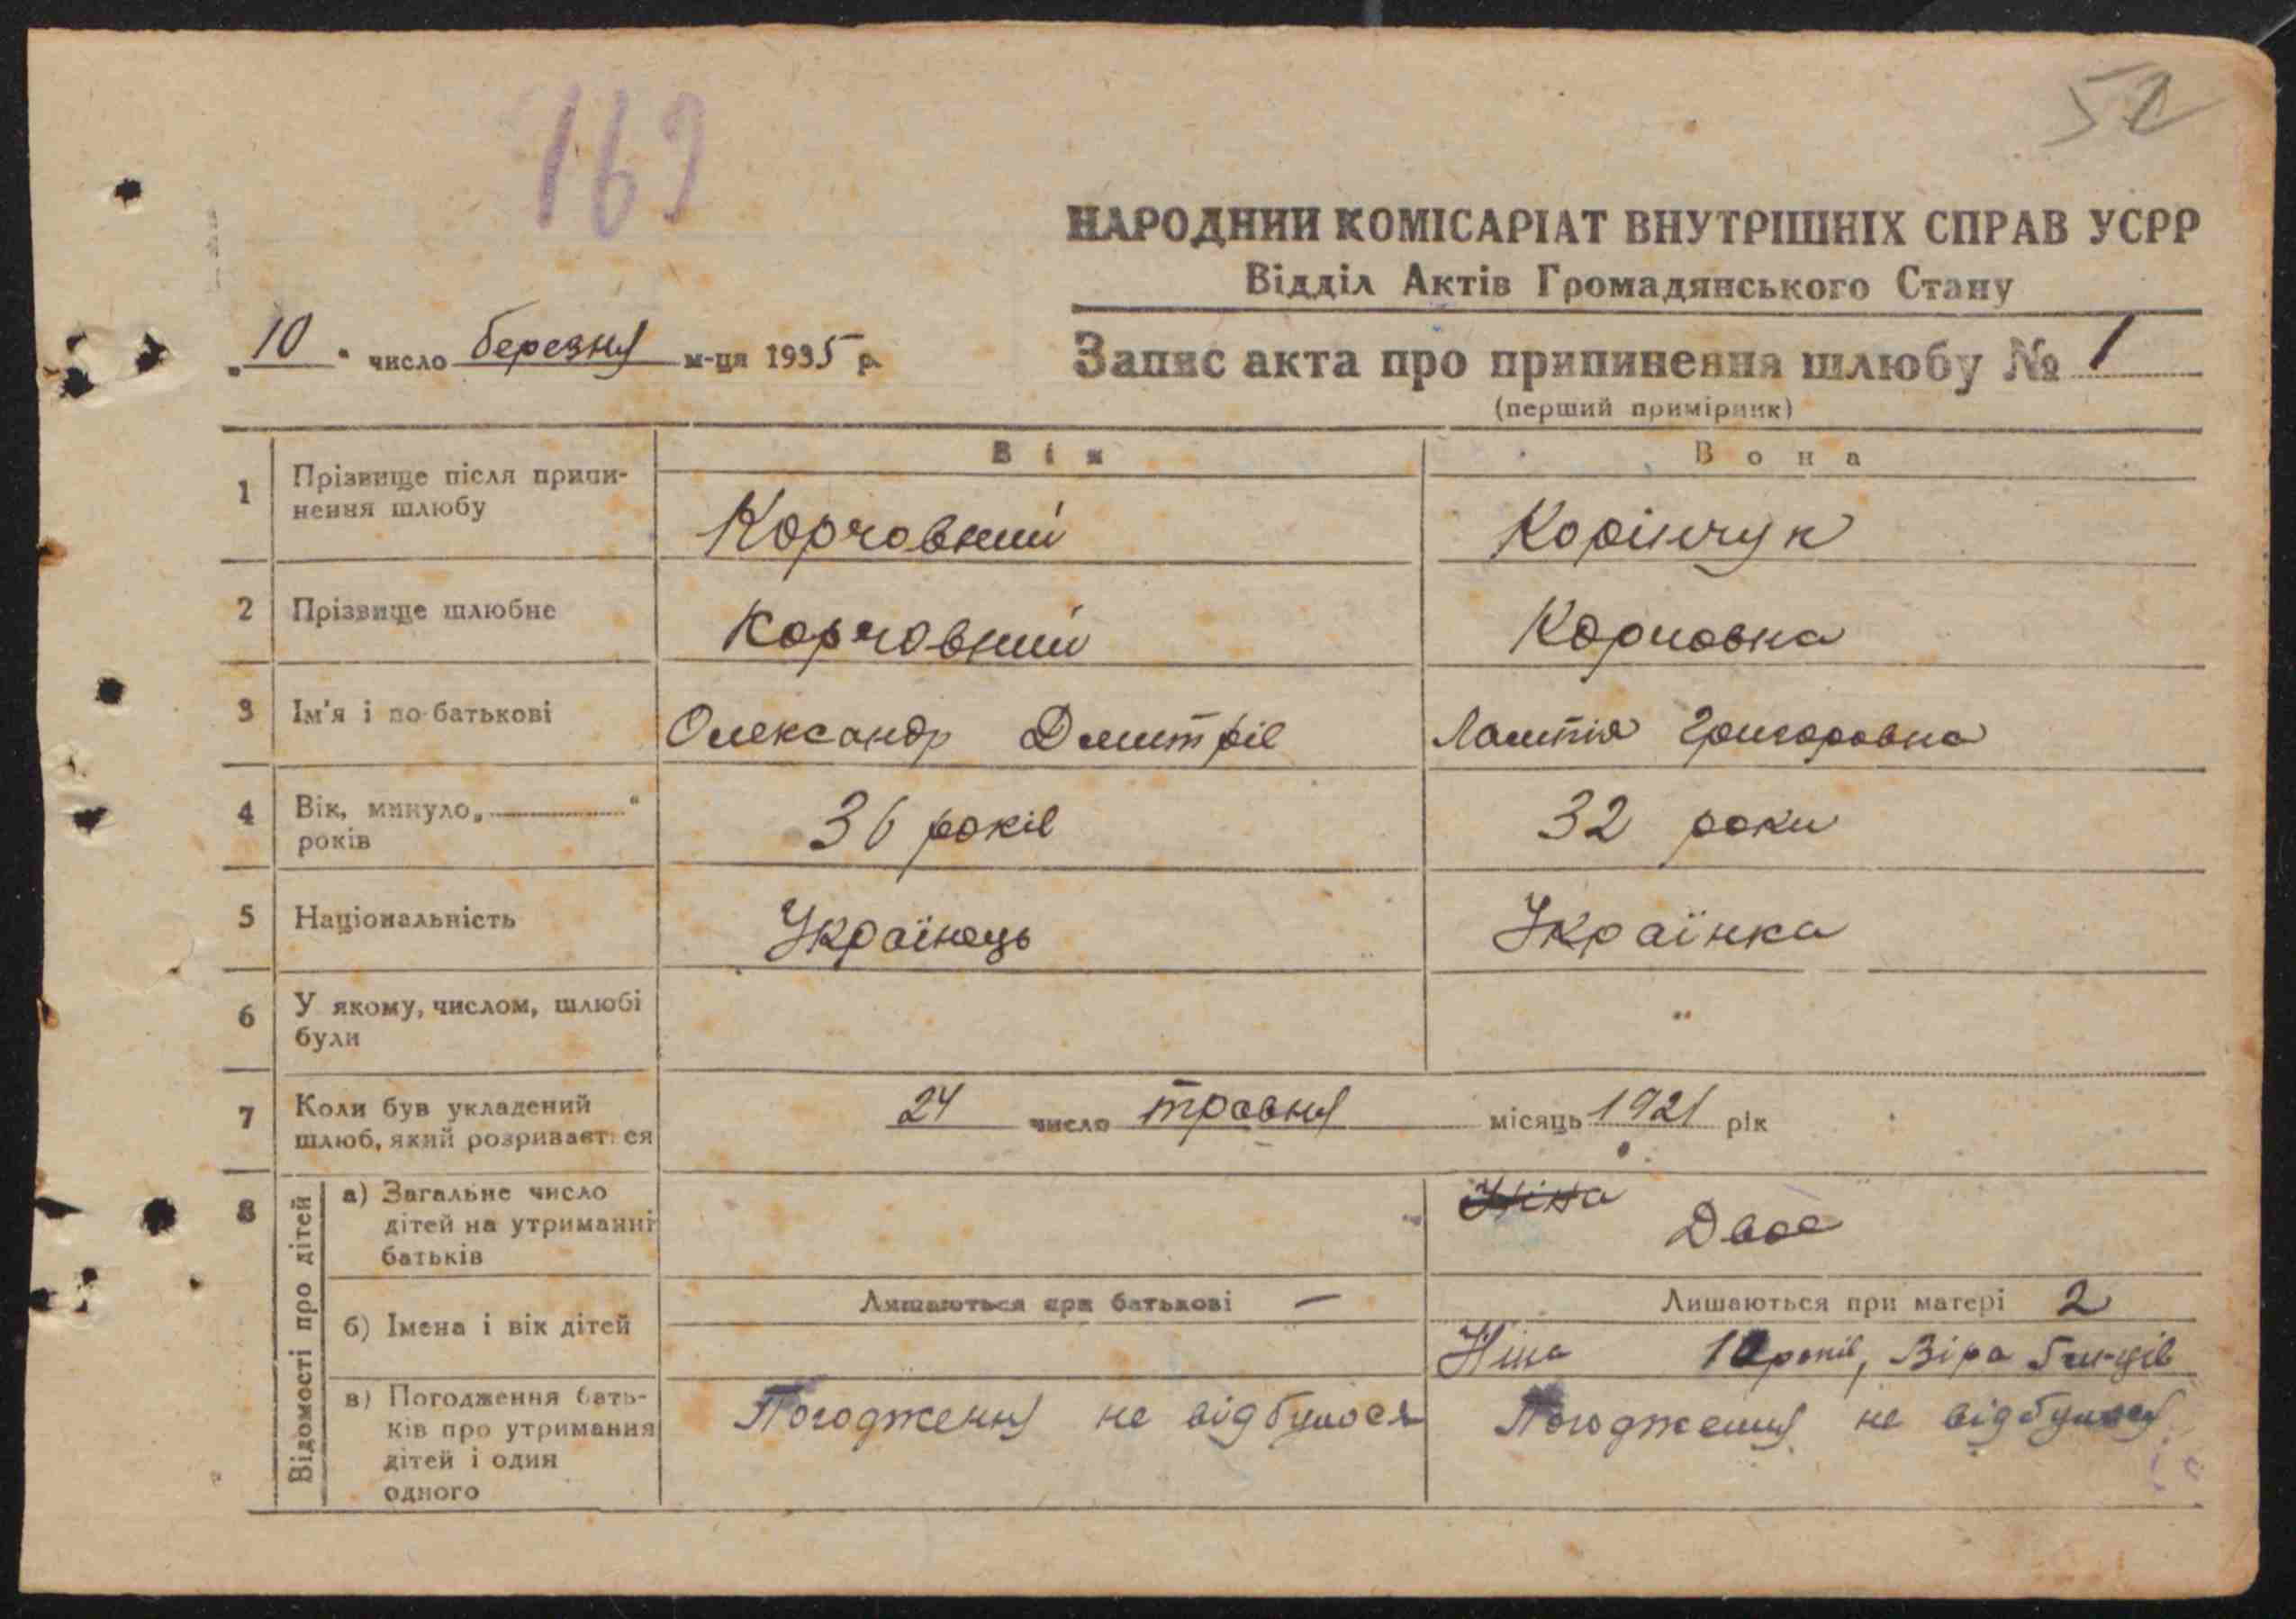 163
52
НАРОДНИЙ КОМІСАРІАТ ВНУТРІШНІХ СПРАВ УСРР
Відділ Актів Громадянського Стану
„10“ число березня м-ця 1935 р.
Запис акта про припинення шлюбу № 1
(перший примірник)
Він Вона
1 Прізвище після припи-
нення шлюбу
Корчовний Корінчук
2 Прізвище шлюбне Корчовний Корчовна
3 Ім'я і по-батькові Олександр Дмитріє Григоровна
4 Вік, минуло „ “
років
36 років 32 роки
5 Національність Українець Українка
6 У якому, числом, шлюбі
були
"
7 Коли був укладений
шлюб, який розривається
24 число травня місяць 1921 рік
8 Відомості про дітей
а) Загальне число
дітей на утриманні
батьків
Ніна
Двоє
б) Імена і вік дітей
Лишаються при батькові —
Лишаються при матері 2
Ніна 10 років, Віра
в) Погодження бать-
ків про утримання
дітей і один
одного
Погодження не відбулося Погодження не відбулося